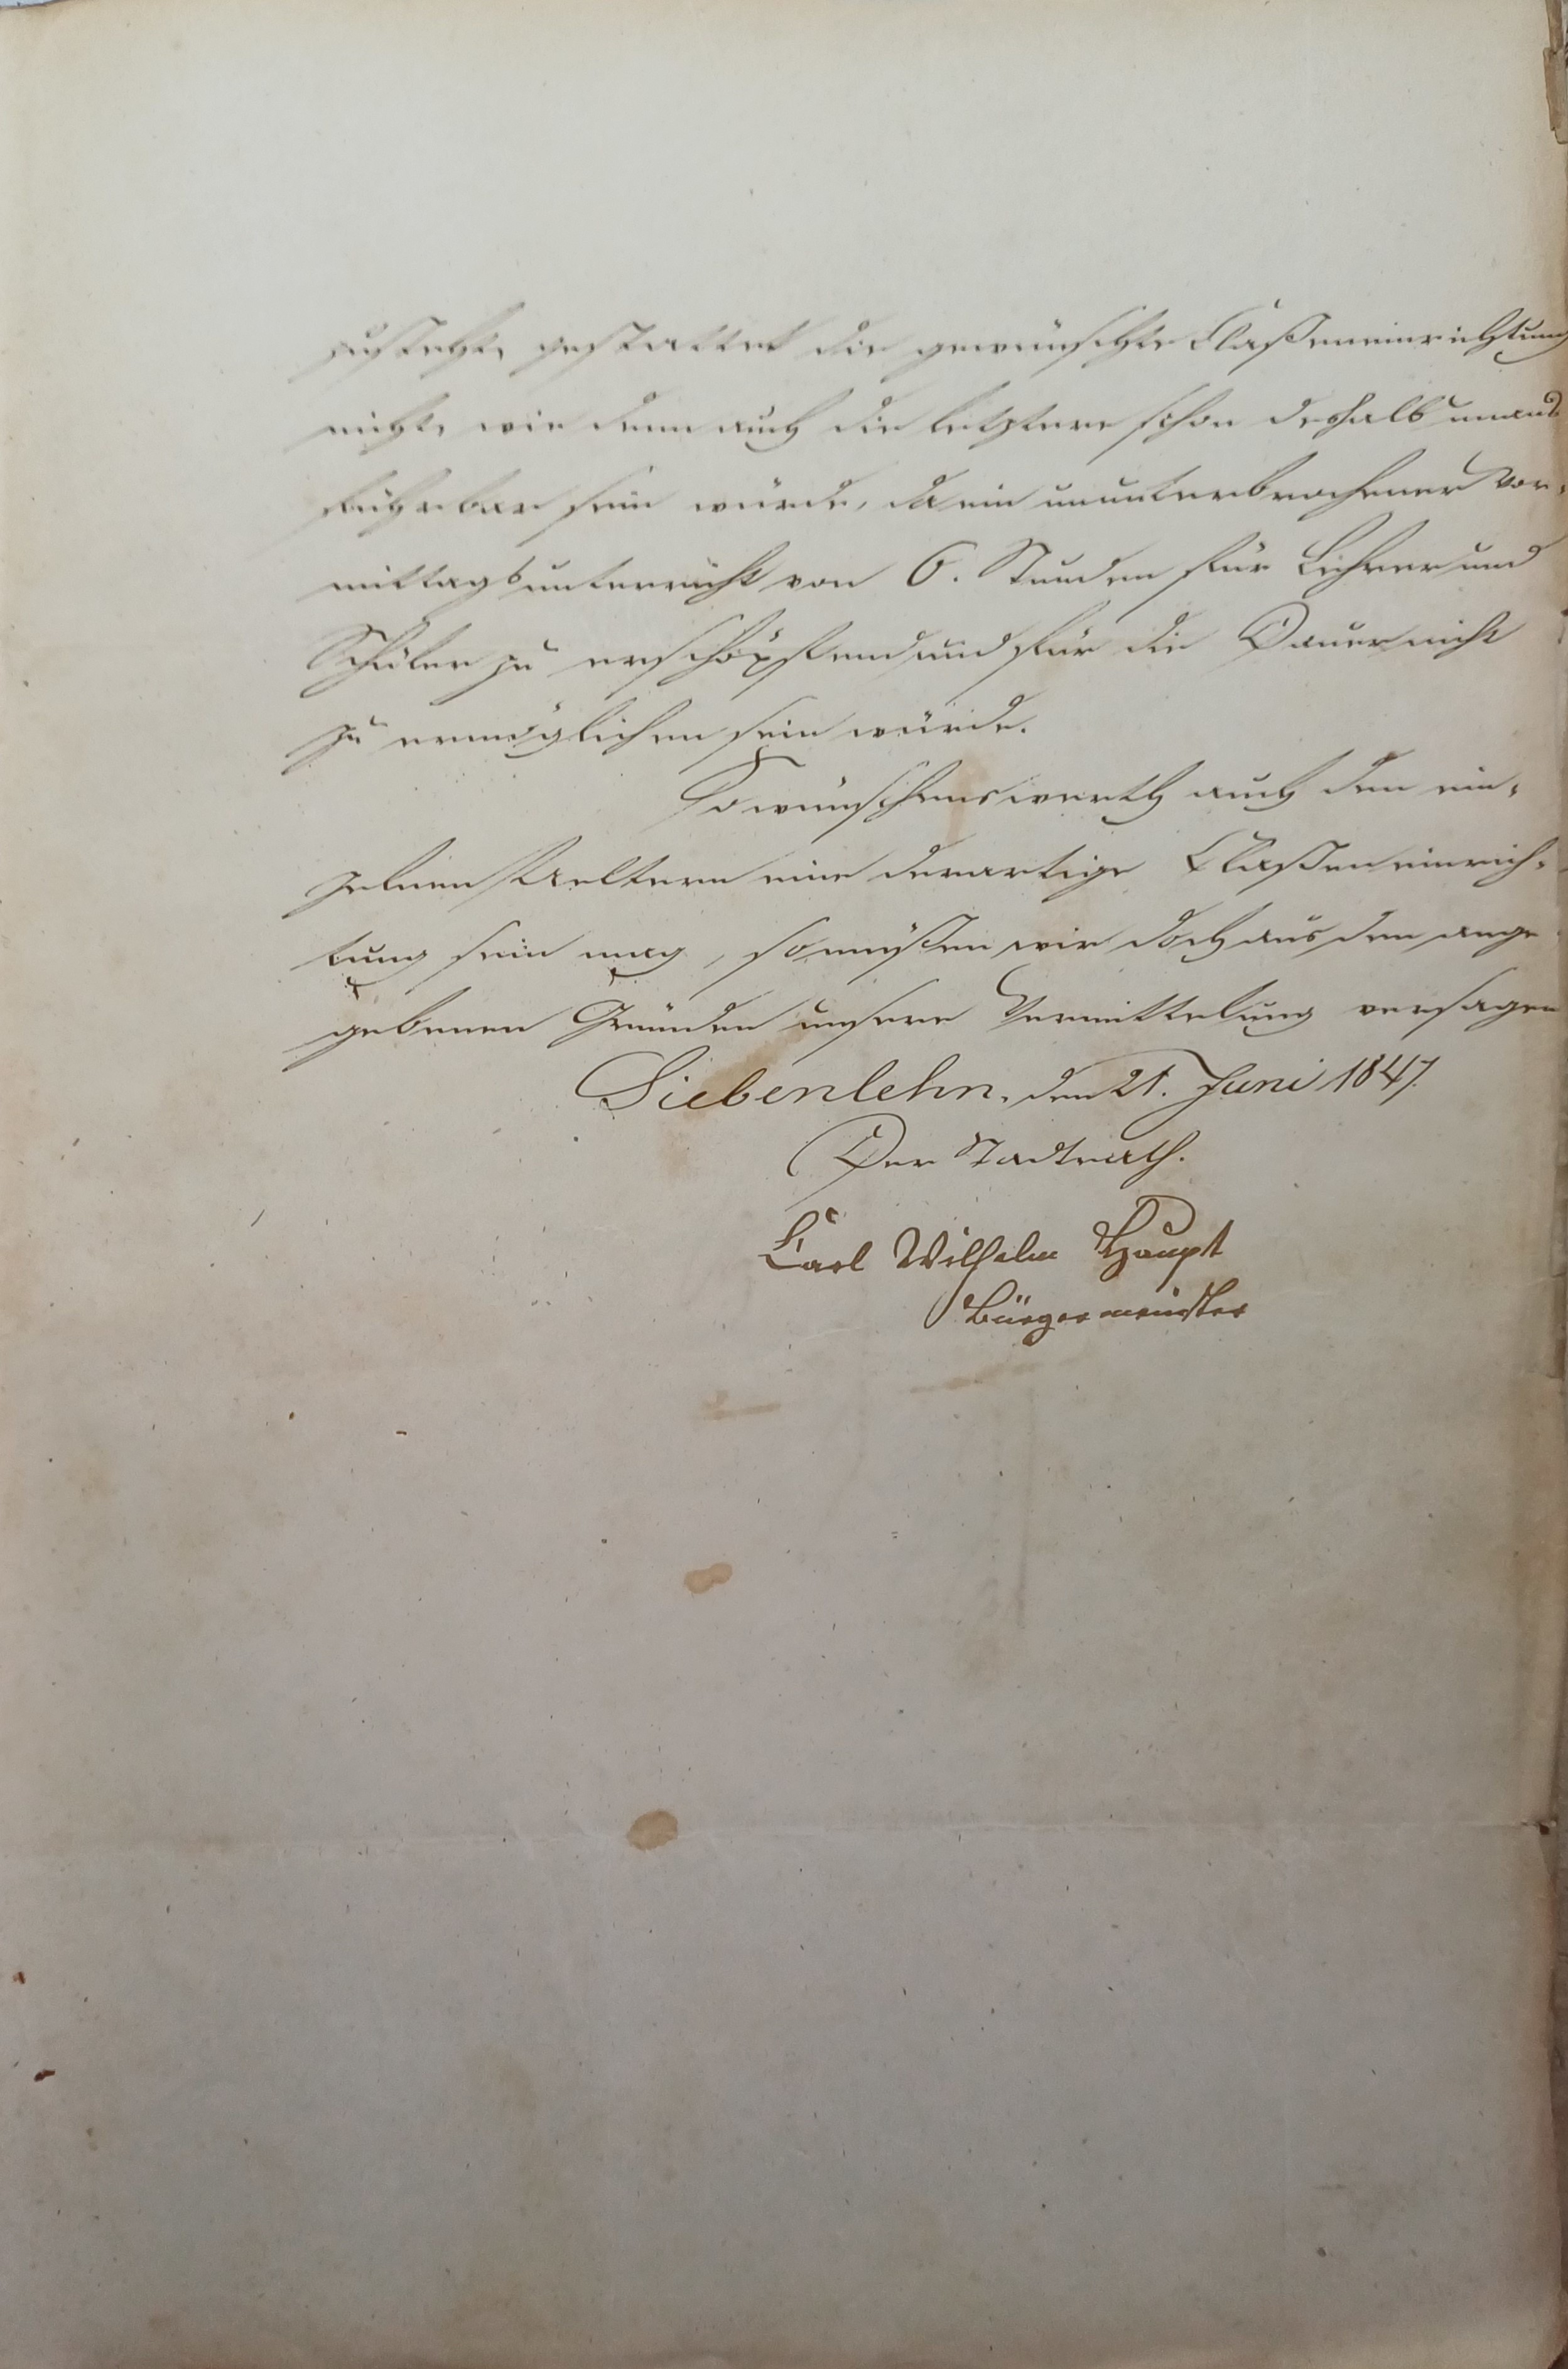 zusteht, gestattet die gewünschte Claßeneinrichtung
nicht, wie denn auch die letztere schon deshalb unaus
führbar sein würde, da ein ununterbrochener Vor-
mittagsunterricht von 6. Stunden für Lehrer und
Schüler zu erschöpfend und für die Dauer nicht
zu ermöglichen sein würde.
So wünschenswerth auch den ein-
zelnen Aeltern eine derartige Claßeneinrich-
tung sein mag, so müßen wir doch aus den ange
gebenen Gründen unsere Vermittelung versagen
Siebenlehn, den 21. Juni 1847.
Der Stadtrath.
Carl Wilhelm Haupt
Bürgermeister